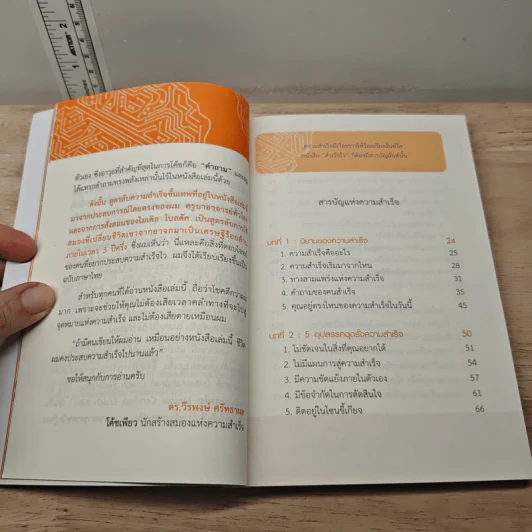 ตัวเอง ซึ่งอาวุธที่สำคัญที่สุดในการโค้ชก็คือ "คำถาม"
ได้แทรกคำถามทรงพลังเหล่านั้นไว้ในหนังสือเล่มนี้ด้วย
ดังนั้น สูตรลับความสำเร็จขั้นเทพที่อยู่ในหนังสือเล่มนี้
มาจากประสบการณ์โดยตรงของผม ครูบาอาจารย์
และจากการสั่งสอนของไมเคิล โบลดัค เป็นสูตรลับการใช้
สมองที่เปลี่ยนชีวิตเขาจากยาจกมาเป็นเศรษฐีร้อยล้าน
ภายในเวลา 3 ปีครึ่ง ซึ่งผมเห็นว่า นี่แหละคือสิ่งที่ตอบโจทย์
ของคนที่อยากประสบความสำเร็จไว ผมจึงได้เรียบเรียงขึ้นเป็น
ฉบับภาษาไทย
สำหรับทุกคนที่ได้อ่านหนังสือเล่มนี้ ถือว่าโชคดีกว่าผม
มาก เพราะจะช่วยให้คุณไม่ต้องเสียเวลาคลำทางที่จะไปสู่
จุดหมายแห่งความสำเร็จ และไม่ต้องเสียดายเหมือนผม
"ถ้ามีคนเขียนให้ผมอ่าน เหมือนอย่างหนังสือเล่มนี้ ชีวิต
ผมคงประสบความสำเร็จไปนานแล้ว"
ขอให้สนุกกับการอ่านครับ
ดร.วีรพงษ์ ศรัทธาผล
โค้ชเพียว นักสร้างสมองแห่งความสำเร็จ
สารบัญแห่งความสำเร็จ
บทที่ 1 : นิยามของความสำเร็จ 24
1. ความสำเร็จคืออะไร 25
2. ความสำเร็จเริ่มมาจากไหน 28
3. ทางสามแพร่งแห่งความสำเร็จ 31
4. คำถามของคนสำเร็จ 35
5. คุณอยู่ตรงไหนของความสำเร็จในวันนี้ 45
บทที่ 2 : 5 อุปสรรคฉุดรั้งความสำเร็จ 50
1. ไม่ชัดเจนในสิ่งที่คุณอยากได้ 51
2. ไม่มีแผนการสู่ความสำเร็จ 54
3. มีความขัดแย้งภายในตัวเอง 57
4. มีข้อจำกัดในการตัดสินใจ 61
5. ติดอยู่ในโซนขี้เกียจ 66